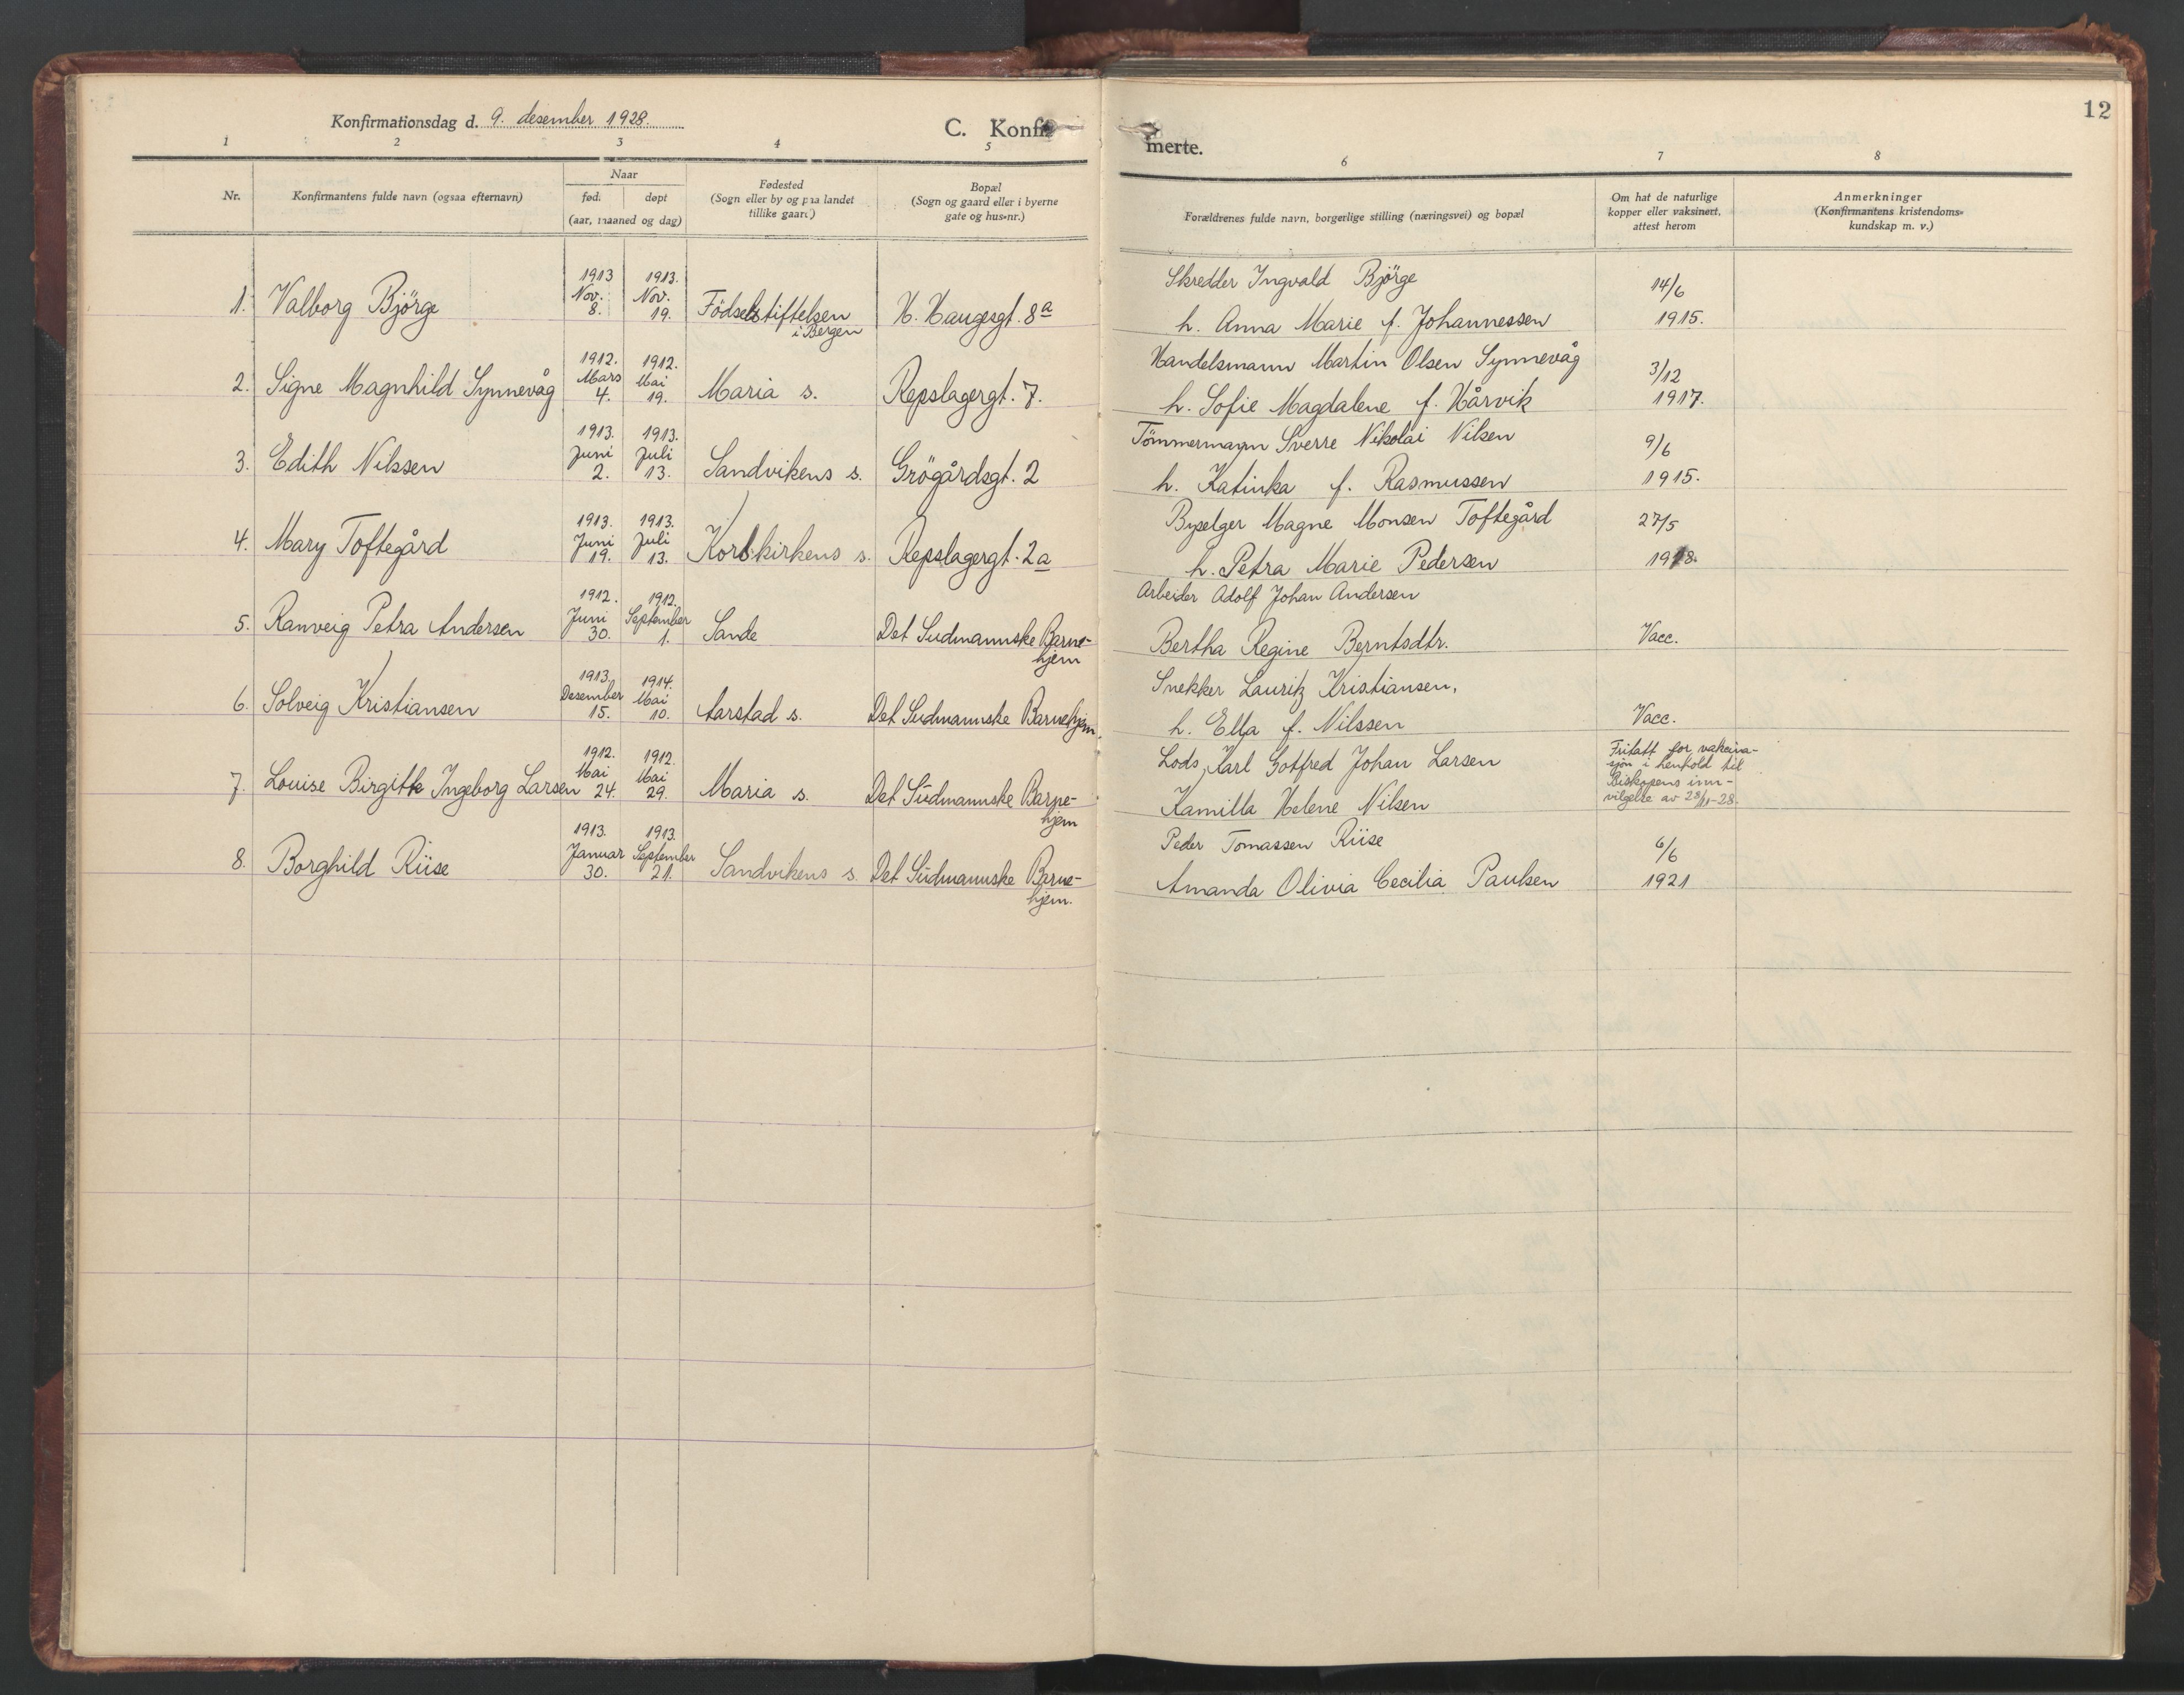 12
Konfirmationsdag d. 9. desember 1928.
C. Konfirmerte.
1 2 3 4 5 6 7 8
Nr.
Konfirmantens fulde navn (ogsaa efternavn)
Naar
fød. døpt
(aar, maaned og dag)
Fødested
(Sogn eller by og paa landet
tillike gaard)
Bopæl
(Sogn og gaard eller i byerne
gate og hus-nr.)
Forældrenes fulde navn, borgerlige stilling (næringsvei) og bopæl
Om hat de naturlige
kopper eller vaksinert,
attest herom
Anmerkninger
(Konfirmantens kristendoms-
kundskap m. v.)
1. Valborg Björge 1913 Nov. 8. 1913. Nov. 19. Födselsstiftelsen i Bergen H. Haugegt. 8a
Skredder Ingvald Björge
h. Anna Marie f. Johannessen
14/6 1915.
2. Signe Magnhild Synnevåg 1912. Mars 4. 1912. Mai 19. Maria s. Repslagergt. 7.
Handelsmann Martin Olsen Synnevåg
h. Sofie Magdalene f. Hårvik
3/12 1917.
3. Edith Nilssen 1913. Juni 2. 1913. Juli 13. Sandvikens s. Grögårdsgt. 2
Tömmermann Sverre Nikolai Nilsen
h. Katinka f. Rasmussen
9/6 1915.
4. Mary Toftegård 1913. Juni 19. 1913. Juli 13. Korskirkens s. Repslagergt. 2a
Byselger Magne Monsen Toftegård
h. Petra Marie Pedersen
27/5 1918.
5. Ranveig Petra Andersen 1912. Juni 30. 1912. September 1. Sande Det Sudmannske Barne-
hjem
Arbeider Adolf Johan Andersen
Bertha Regine Berntsdtr.
Vacc.
6. Solveig Kristiansen 1913. Desember 15. 1914. Mai 10. Aarstad s. Det Sudmannske Barnehjem.
Snekker Lauritz Kristiansen,
h. Ella f. Nilssen
Vacc.
7. Louise Birgitte Ingeborg Larsen 1912. Mai 24. 1912. Mai 29. Maria s. Det Sudmannske Barne-
hjem
Lods, Karl Gotfred Johan Larsen
Kamilla Helene Nilsen
Fritatt for vaksina-
sjon i henhold til
Biskopens inn-
vilgelse av 28/11-28.
8. Borghild Riise 1913. Januar 30. 1913. September 21. Sandvikens s. Det Sudmannske Barne-
hjem.
Peder Tomassen Riise
Amanda Olivia Cecilia Paulsen
6/6 1921